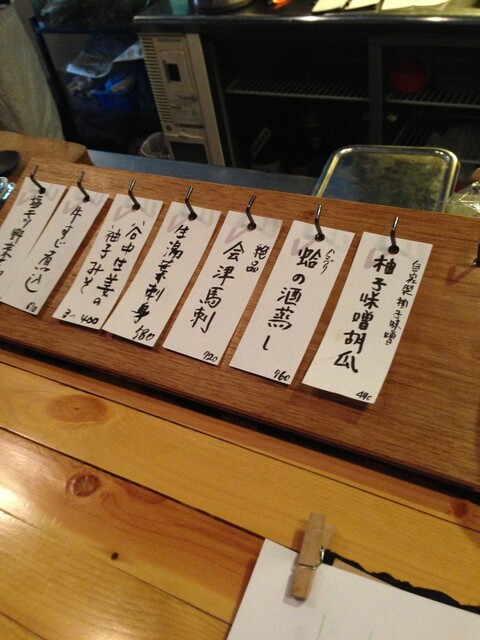 自家製柚子味噌
柚子味噌胡瓜
490
ハマグリ
蛤の酒蒸し
760
絶品
会津馬刺
920
生湯葉刺身
谷中生姜の
柚子みそ
980
牛すじ煮込
400